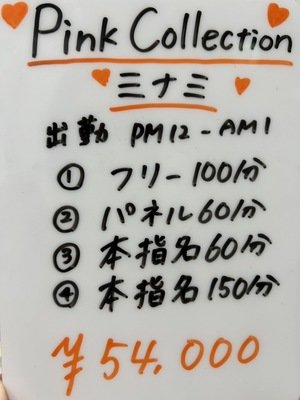 Pink Collection
ミナミ
出勤 PM12-AM1
① フリー100分
② パネル60分
③ 本指名60分
④ 本指名150分
¥54,000